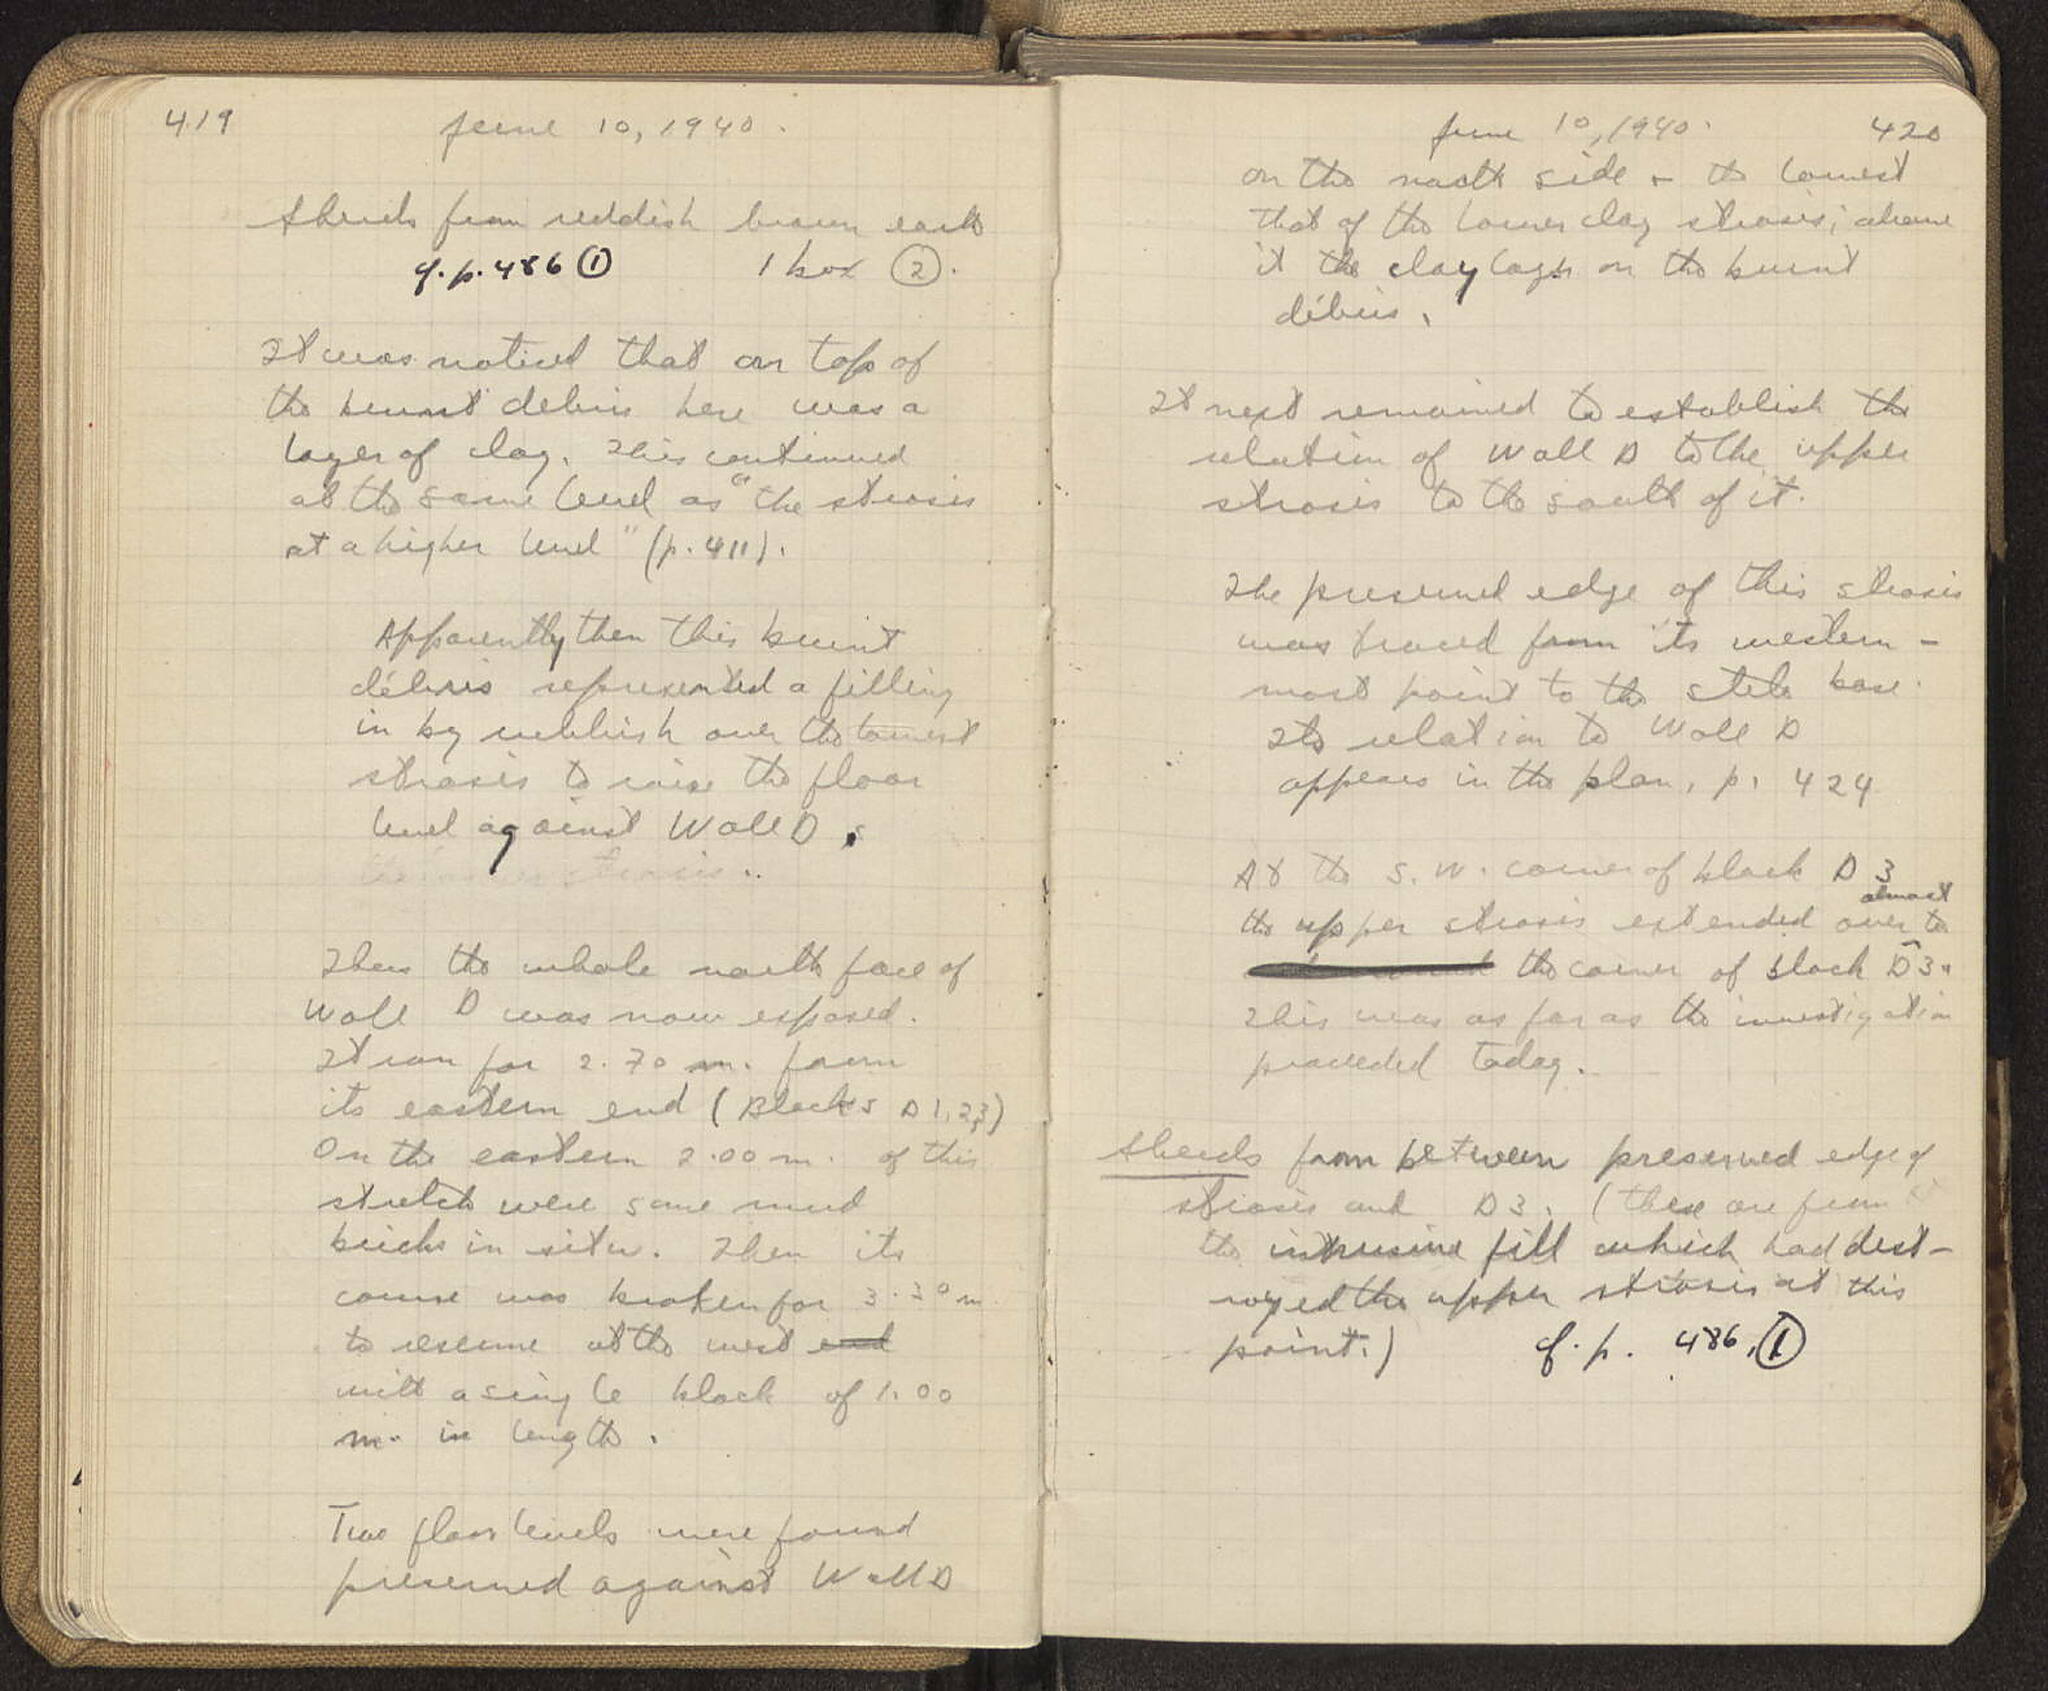 419
June 10, 1940.
Sherds from reddish brown earth
cf. p. 486 ① 1 box ②.
It was noticed that on top of
the burnt debris here was a
layer of clay. This continued
at the same level as "the strosis
at a higher level" (p. 411).
Apparently then this burnt
débris represented a filling
in by rubbish over the lowest
strosis to raise the floor
level against Wall D.
strosis..
Thus the whole north face of
Wall D was now exposed.
It ran for 2.70 m. from
its eastern end (Blocks D 1, 2, 3)
On the eastern 2.00 m. of this
stretch were some mud
bricks in situ. Then its
course was broken for 3.30 m
to resume at the west end
with a single block of 1.00
m. in length.
Two floor levels were found
preserved against Wall D
June 10, 1940. 420
on the north side - the lowest
that of the lower clay strosis; above
it the clay layer on the burnt
débris.
It next remained to establish the
relation of Wall D to the upper
strosis to the south of it.
The preserved edge of this strosis
was traced from its western-
most point to the stele base.
Its relation to Wall D
appears in the plan, p. 424
At the S.W. corner of block D 3
almost
the upper strosis extended over to
the corner of block D 3.
This was as far as the investigation
proceeded today.
Sherds from between preserved edge of
strosis and D3. (these are from
the intrusive fill which had dest-
royed the upper strosis at this
point.) cf. p. 486, ①